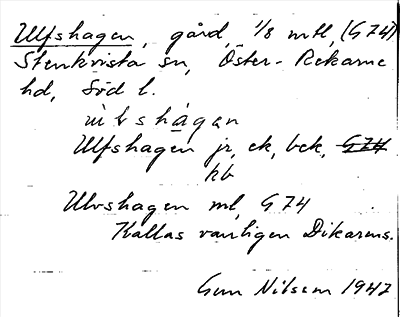 Ulfshagen, gård, 1/8 mtl, (G 74)
Stenkvista sn, Öster-Rekarne
hd, Söd l.
ùlvshágan
Ulfshagen jr, ek, bck, G 74
kb
Ulvshagen ml, G 74
Kallas vanligen Dikarens.
Gun Nilsson 1947